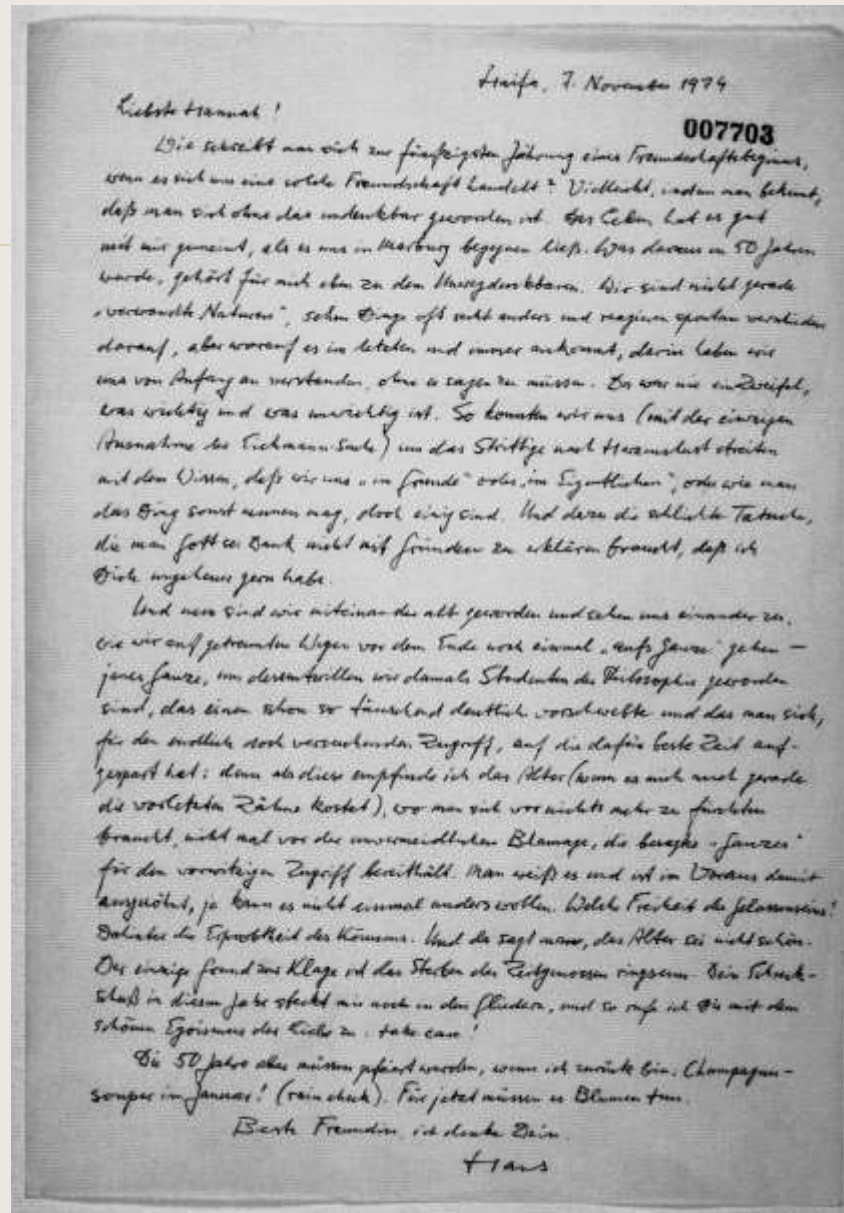 Haifa, 7. November 1974
Liebste Hannah!
007703
Wie schreibt man sich zur fünfzigsten Jährung eines Freundschaftsbeginns,
wenn es sich um eine solche Freundschaft handelt? Vielleicht, indem man bekennt,
daß man sich ohne das undenkbar geworden ist. Das Leben hat es gut
mit mir gemeint, als es uns in Marburg begegnen ließ. Was daraus in 50 Jahren
wurde, gehört für mich eben zu dem Unwegdenkbaren. Wir sind nicht gerade
„verwandte Naturen", sehen Dinge oft recht anders und reagieren spontan verschieden
darauf, aber worauf es im letzten und immer ankommt, darin haben wir
uns von Anfang an verstanden, ohne es sagen zu müssen. Da war nie ein Zweifel,
was wichtig und was unwichtig ist. So konnten wir uns (mit der einzigen
Ausnahme der Eichmann-Sache) um das Strittige nach Herzenslust streiten
mit dem Wissen, daß wir uns „im Grunde" oder „im Eigentlichen", oder wie man
das Ding sonst nennen mag, doch einig sind. Und dazu die schlichte Tatsache,
die man Gott sei Dank nicht mit Gründen zu erklären braucht, daß ich
Dich ungeheuer gern habe.
Und nun sind wir miteinander alt geworden und sehen uns einander zu,
wie wir auf getrennten Wegen vor dem Ende noch einmal „aufs Ganze" gehen —
jenes Ganze, um derentwillen wir damals Studenten der Philosophie geworden
sind, das einem schon so täuschend deutlich vorschwebte und das man sich,
für den endlich doch versuchenden Zugriff, auf die dafür beste Zeit auf-
gespart hat: denn als diese empfinde ich das Alter (wenn es mich auch gerade
die vorletzten Zähne kostet), wo man sich vor nichts mehr zu fürchten
braucht, nicht mal vor der unvermeidlichen Blamage, die besagtes „Ganzes"
für den vorwitzigen Zugriff bereithält. Man weiß es und ist im Voraus damit
ausgesöhnt, ja kann es nicht einmal anders wollen. Welche Freiheit des Gelassenseins!
Dahinter die Erprobtheit des Könnens. Und da sagt man, das Alter sei nicht schön.
Der einzige Grund zur Klage ist das Sterben der Zeitgenossen ringsum. Dein Schreck-
schuß in diesem Jahr steckt mir noch in den Gliedern, und so rufe ich Dir mit dem
schönen Egoismus der Liebe zu: take care!
Die 50 Jahre aber müssen gefeiert werden, wenn ich zurück bin. Champagner-
souper im Januar! (rain check). Für jetzt müssen es Blumen tun.
Beste Freundin, ich denke Dein.
Hans